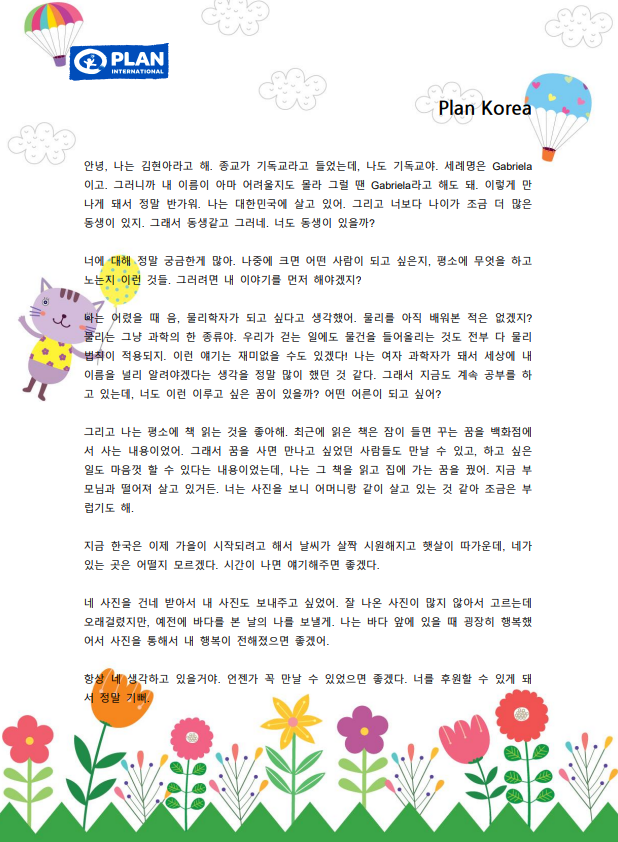 PLAN
INTERNATIONAL
Plan Korea
안녕, 나는 김현아라고 해. 종교가 기독교라고 들었는데, 나도 기독교야. 세례명은 Gabriela
이고. 그러니까 내 이름이 아마 어려울지도 몰라 그럴 땐 Gabriela라고 해도 돼. 이렇게 만
나게 돼서 정말 반가워. 나는 대한민국에 살고 있어. 그리고 너보다 나이가 조금 더 많은
동생이 있지. 그래서 동생같고 그러네. 너도 동생이 있을까?
너에 대해 정말 궁금한게 많아. 나중에 크면 어떤 사람이 되고 싶은지, 평소에 무엇을 하고
노는지 이런 것들. 그러려면 내 이야기를 먼저 해야겠지?
나는 어렸을 때 음, 물리학자가 되고 싶다고 생각했어. 물리를 아직 배워본 적은 없겠지?
물리는 그냥 과학의 한 종류야. 우리가 걷는 일에도 물건을 들어올리는 것도 전부 다 물리
법칙이 적용되지. 이런 얘기는 재미없을 수도 있겠다! 나는 여자 과학자가 돼서 세상에 내
이름을 널리 알려야겠다는 생각을 정말 많이 했던 것 같다. 그래서 지금도 계속 공부를 하
고 있는데, 너도 이런 이루고 싶은 꿈이 있을까? 어떤 어른이 되고 싶어?
그리고 나는 평소에 책 읽는 것을 좋아해. 최근에 읽은 책은 잠이 들면 꾸는 꿈을 백화점에
서 사는 내용이었어. 그래서 꿈을 사면 만나고 싶었던 사람들도 만날 수 있고, 하고 싶은
일도 마음껏 할 수 있다는 내용이었는데, 나는 그 책을 읽고 집에 가는 꿈을 꿨어. 지금 부
모님과 떨어져 살고 있거든. 너는 사진을 보니 어머니랑 같이 살고 있는 것 같아 조금은 부
럽기도 해.
지금 한국은 이제 가을이 시작되려고 해서 날씨가 살짝 시원해지고 햇살이 따가운데, 네가
있는 곳은 어떨지 모르겠다. 시간이 나면 얘기해주면 좋겠다.
네 사진을 건네 받아서 내 사진도 보내주고 싶었어. 잘 나온 사진이 많지 않아서 고르는데
오래걸렸지만, 예전에 바다를 본 날의 나를 보낼게. 나는 바다 앞에 있을 때 굉장히 행복했
어서 사진을 통해서 내 행복이 전해졌으면 좋겠어.
항상 네 생각하고 있을거야. 언젠가 꼭 만날 수 있었으면 좋겠다. 너를 후원할 수 있게 돼
서 정말 기뻐.